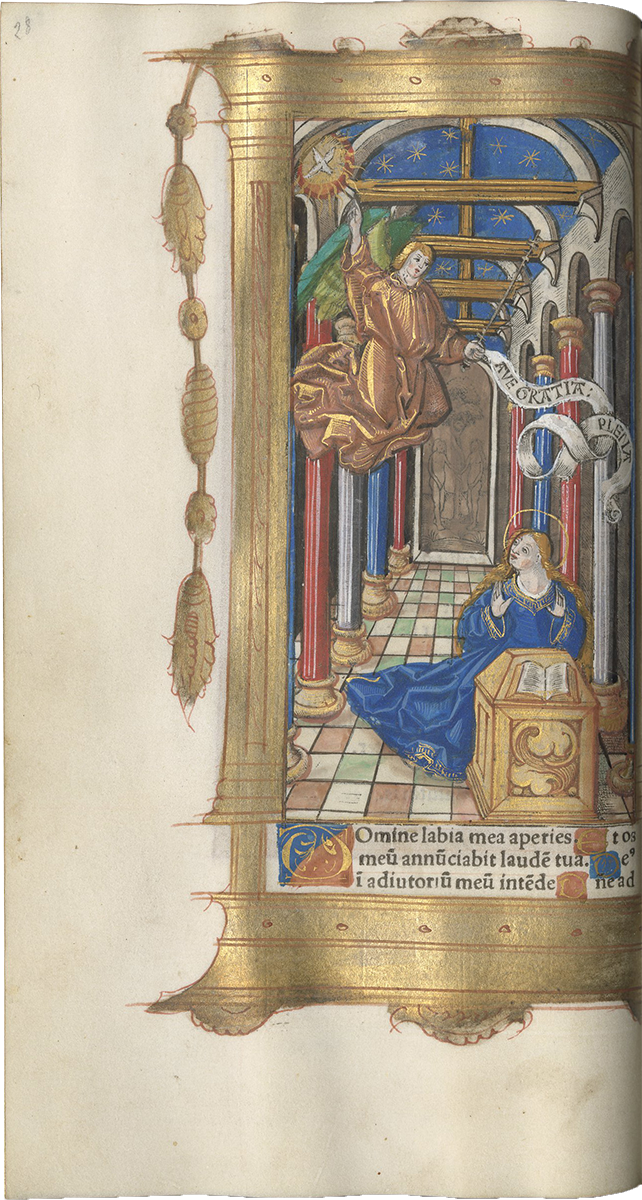 28
AVE GRATIA:
PLENA
DOmine labia mea aperies Et os
meū annūciabit laudē tua. Deꝰ
ī adiutoriū meū intēde Dñe ad